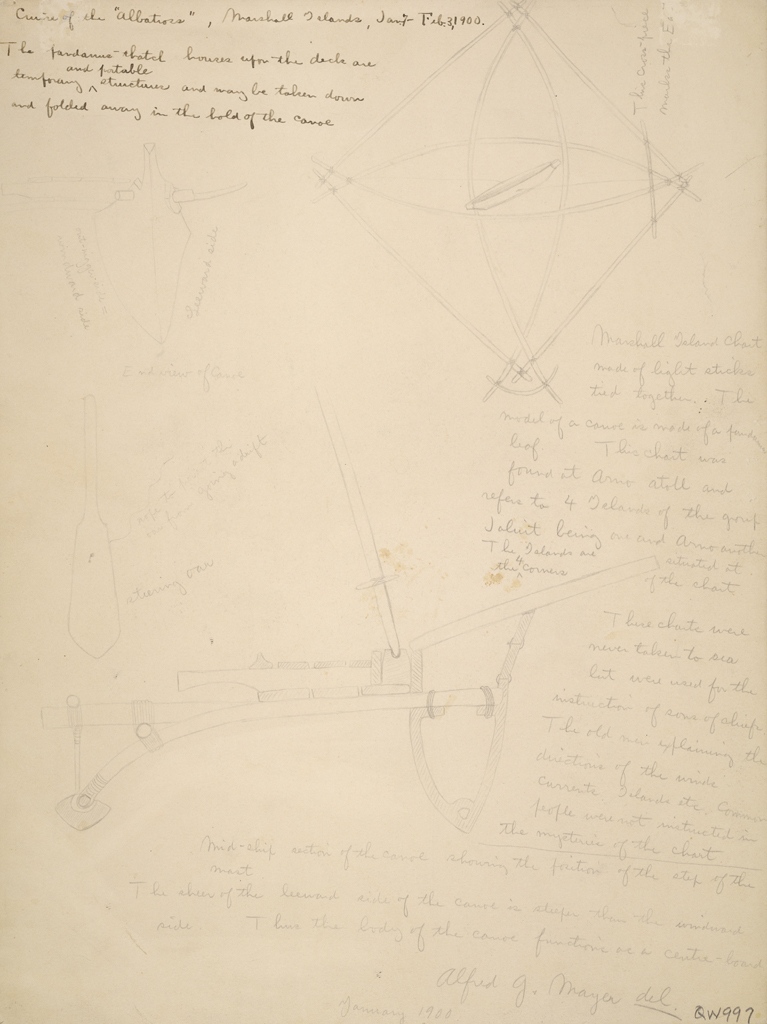 Cruise of the "Albatross", Marshall Islands, Jan 7 - Feb. 3, 1900.
The pandanus-thatch houses upon the deck are
temporary and portable structures and may be taken down
and folded away in the hold of the canoe
This cross-piece
leeward side
windward side
End view of Canoe
Marshall Island Chart
made of light sticks
tied together. The
model of a canoe is made of a pandanus
leaf. This chart was
found at Arno atoll and
refers to 4 Islands of the group
Jaluit being one and Arno another
The Islands are situated at
the 4 corners of the chart.
steering oar
These charts were
never taken to sea
but were used for the
instruction of sons of chiefs
The old men explaining the
directions of the winds
currents Islands etc. Common
people were not instructed in
the mysteries of the chart
Mid-ship section of the canoe showing the position of the step of the
mast
The sheer of the leeward side of the canoe is steeper than the windward
side. Thus the body of the canoe functions as a centre-board
Alfred G. Mayer del.
January 1900
QW997